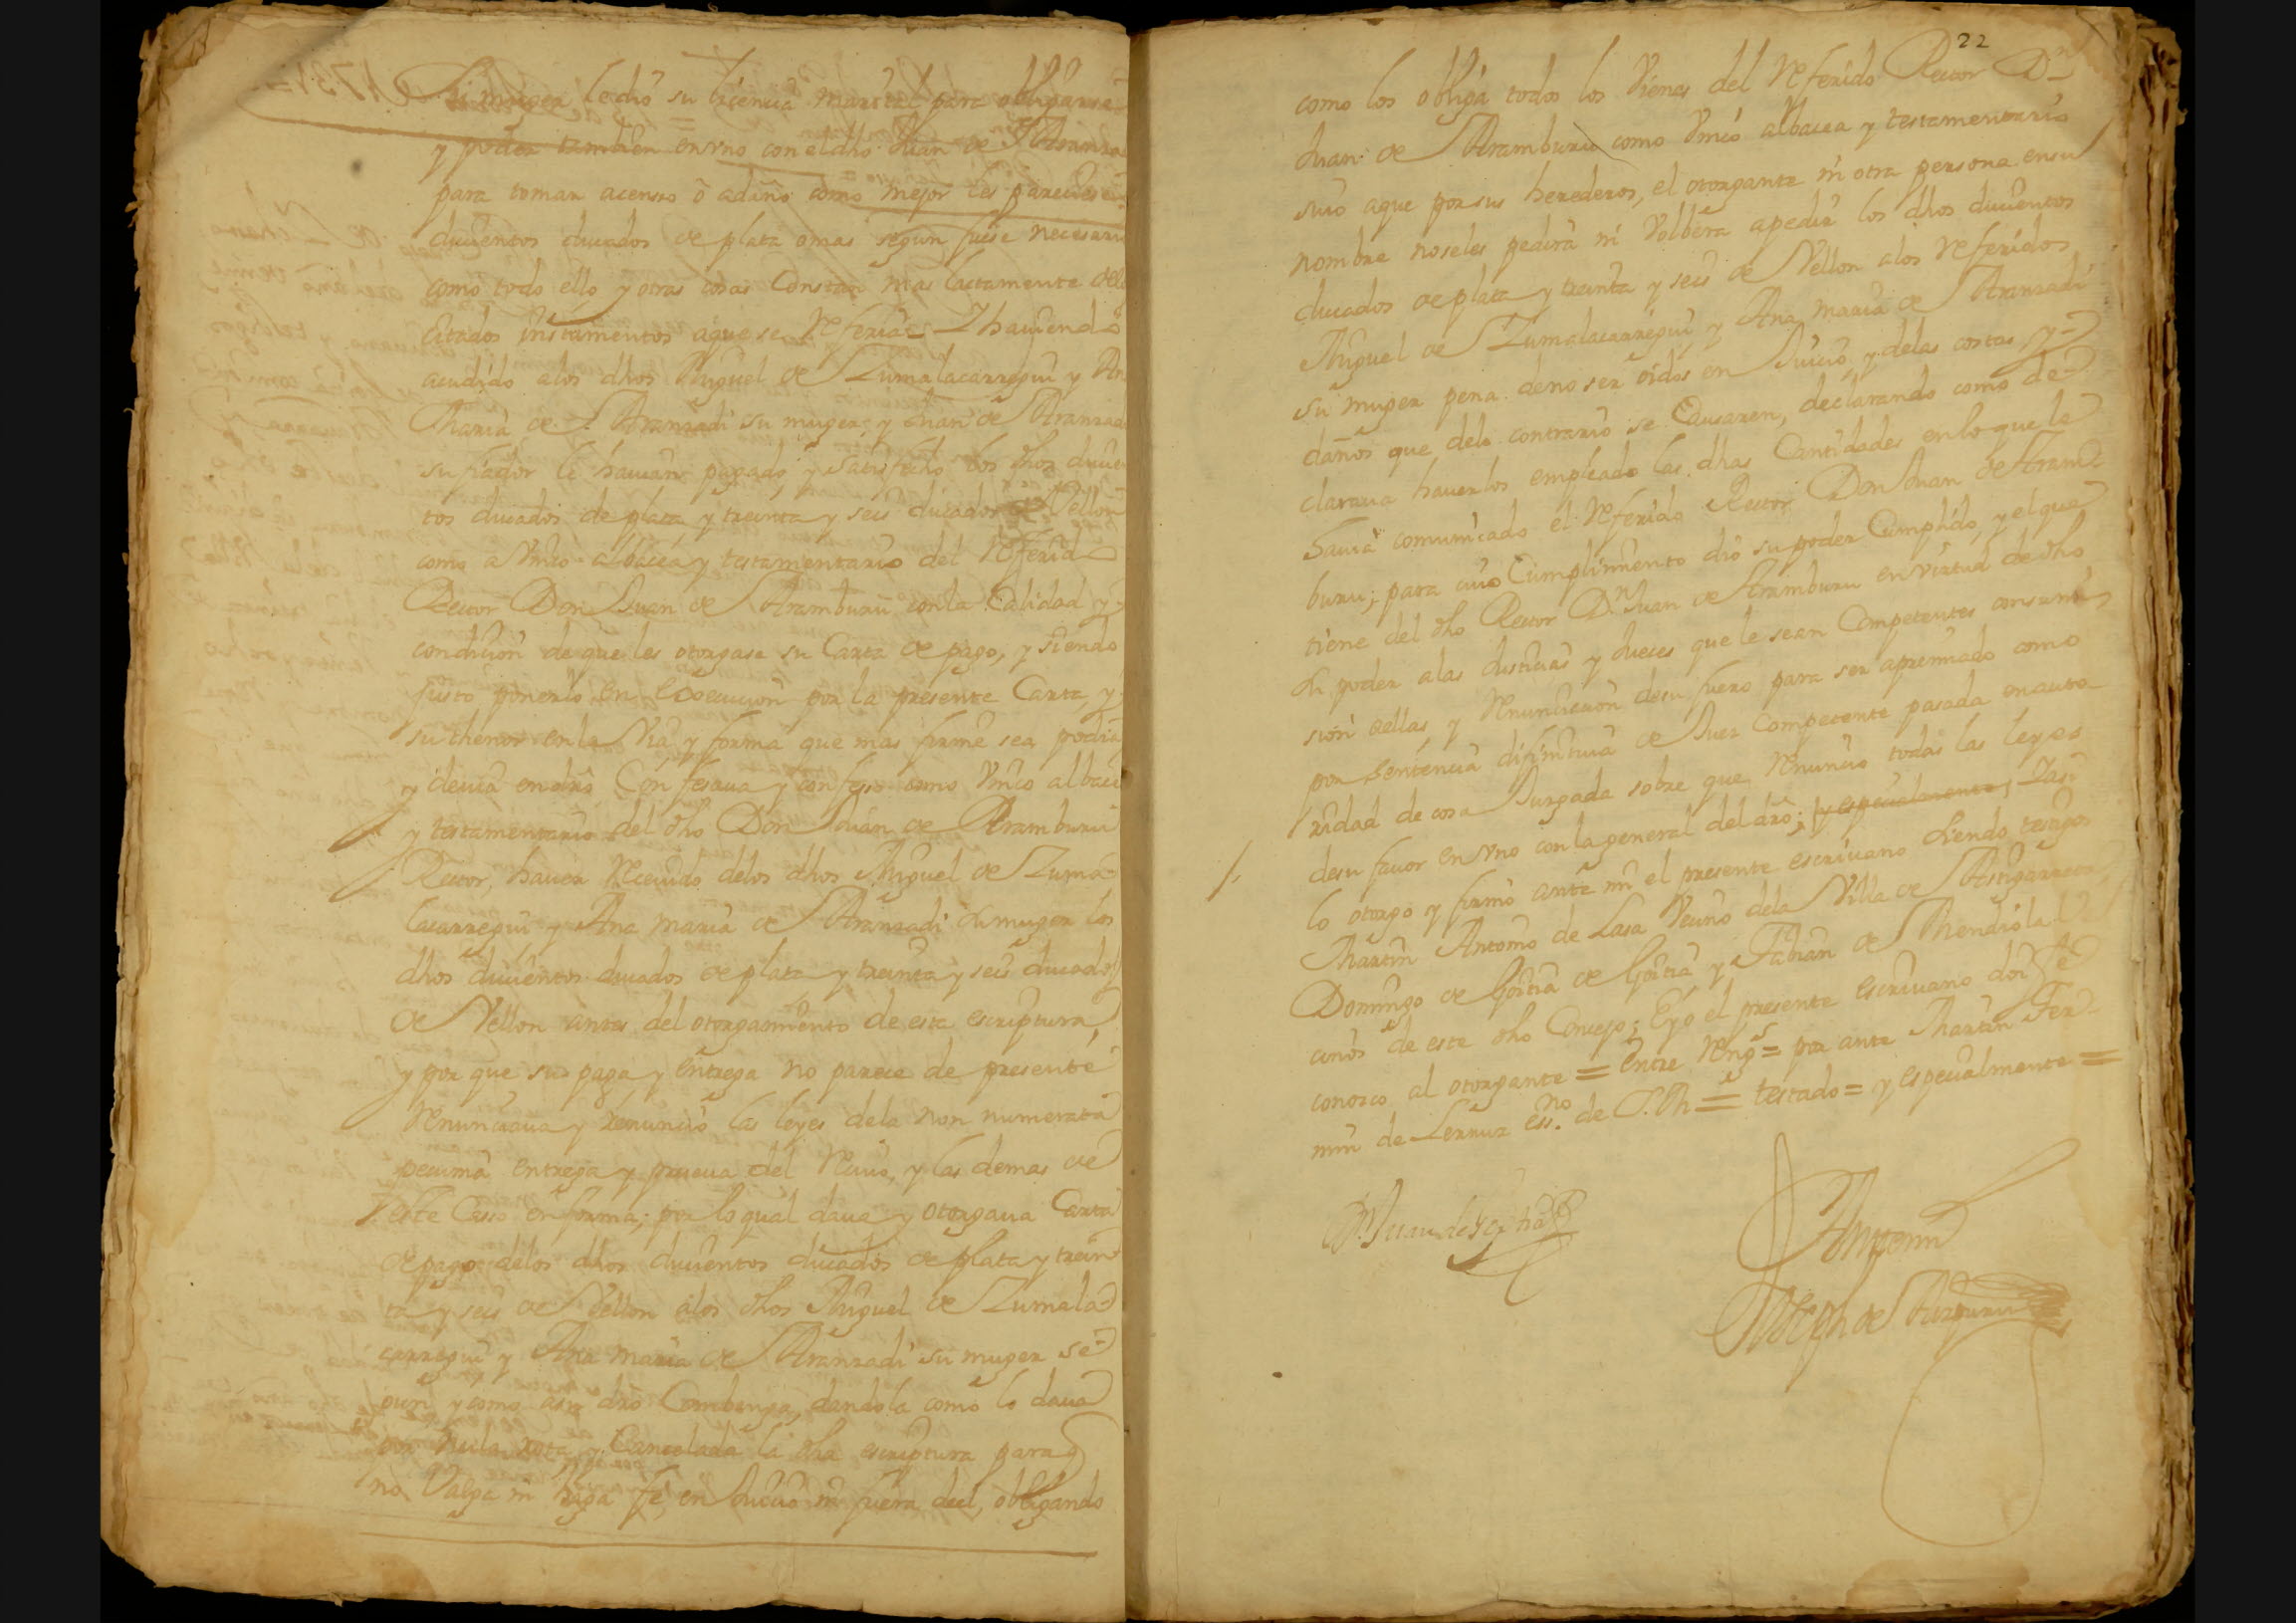 su muger le dio su licencia marital para obligarse
y poder tambien en vno con el dho Juan de Aranza
para tomar acenso ô adaño como mejor les pareciese
ducientos ducados de plata o mas segun fuese necesario
como todo ello y otras cosas Constan mas lactamente del
citados instamentos aque se Referia = Y haviendo
acudido alos dhos Miguel de Zumalacarregui y An
Maria de Aranzadi su muger, y Juan de Aranzad
su fiador le havian pagado y satisfecho los dhos ducien
tos ducados de plata y treinta y seis ducados de Vellon
como a Vnico albacea y testamentario del Referido
Rector Don Juan de Aramburu con la Calidad y
condicion de que les otorgase su Carta de pago, y siendo
justo ponerlo en Execucion por la presente Carta, y
su thenor en la Via y forma que mas firme sea podia
y devia en dro Confesava y confeso como Vnico albace
y testamentario del dho Don Juan de Aramburu
Rector, haver Recivido delos dhos Miguel de Zuma
lacarregui y Ana maria de Aranzadi su muger los
dhos ducientos ducados de plata y treinta y seis ducados
de Vellon antes del otorgamiento de esta escriptura,
y por que su paga y entrega no parece de presente
Renunciava y renuncio las leyes dela non numerata
pecunia entrega y prueva del Recivo, y las demas de
este Casso en forma; por lo qual dava y otorgava Carta
de pago delos dhos ducientos ducados de plata y trein
ta y seis de Vellon alos dhos Miguel de Zumala
carregui y Ana maria de Aranzadi su muger se
gun y como asu dro Combenga, dandola como lo dava
por nula rota y Cancelada la dha escriptura para q
no Valga ni haga fe en Juicio ni fuera deel, obligando
22
como los obliga todos los Vienes del Referido Rector Dn
Juan de Aramburu como Vnico albacea y testamentario
suio aque por sus herederos, el otorgante ni otra persona en su
nombre no seles pedira ni Volbera apedir los dhos ducientos
ducados de plata y treinta y seis de Vellon alos Referidos
Miguel de Zumalacarregui y Ana maria de Aranzadi
su muger pena deno ser oidos en Juicio, y delas costas, y
daños que delo contrario se Causaren, declarando como de
clarava haverlos empleado las dhas Cantidades en lo que le
havia comunicado el Referido Rector Don Juan de Aram
buru; para cuio Cumplimiento dio su poder Cumplido, y el que
tiene del dho Rector Dn Juan de Aramburu en virtud de dho
su poder alas Justicias y Jueces que le sean Competentes con sumi
sion aellas, y Renunciacion desu fuero para ser apremiado como
por Sentencia difinitiva de Juez Competente pasada en auto
ridad de cosa Juzgada sobre que Renuncio todas las leyes
desu favor en vno con la general del dro; y especialmente, Y asi
lo otorgo y firmo ante mi el presente escrivano siendo testigos
Martin Antonio de Lasa Vecino dela Villa de Astigarreta,
Domingo de Goitia de Goitia, y Fabian de Mendiola
cinos de este dho Concejo; E yo el presente escrivano doi fe
conozco al otorgante = entre Rengs = por ante Martin Fer
min de Lernuz essno de S. M = testado = y especialmente =
Dn Juan de Goitia
Antemi
Joseph de Aurquia